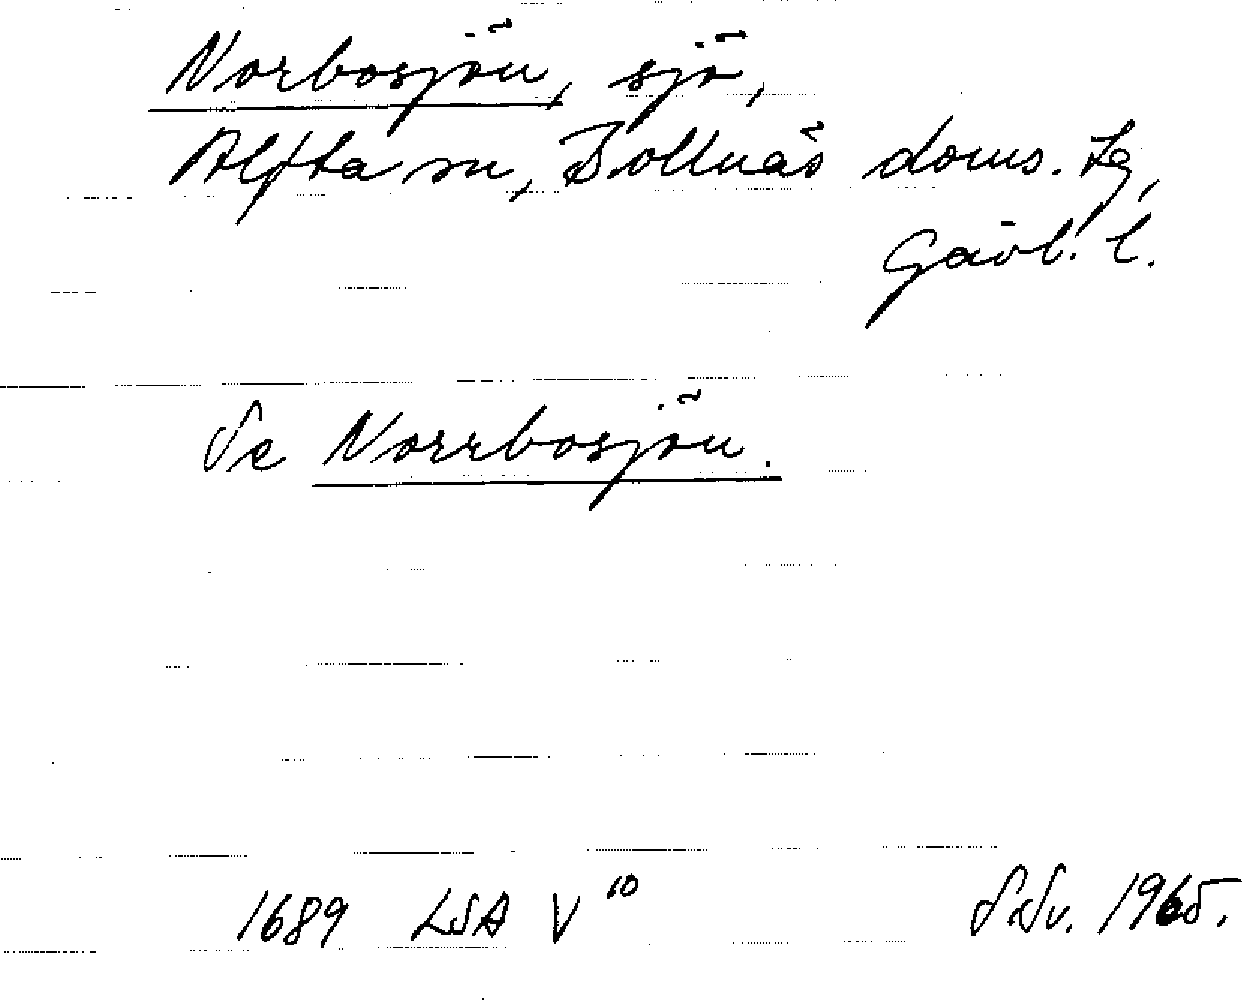 Norbosjön, sjö,
Alfta sn, Bollnäs doms. lg,
Gävl. l.
Se Norrbosjön.
1689 LSA V 10
1965.